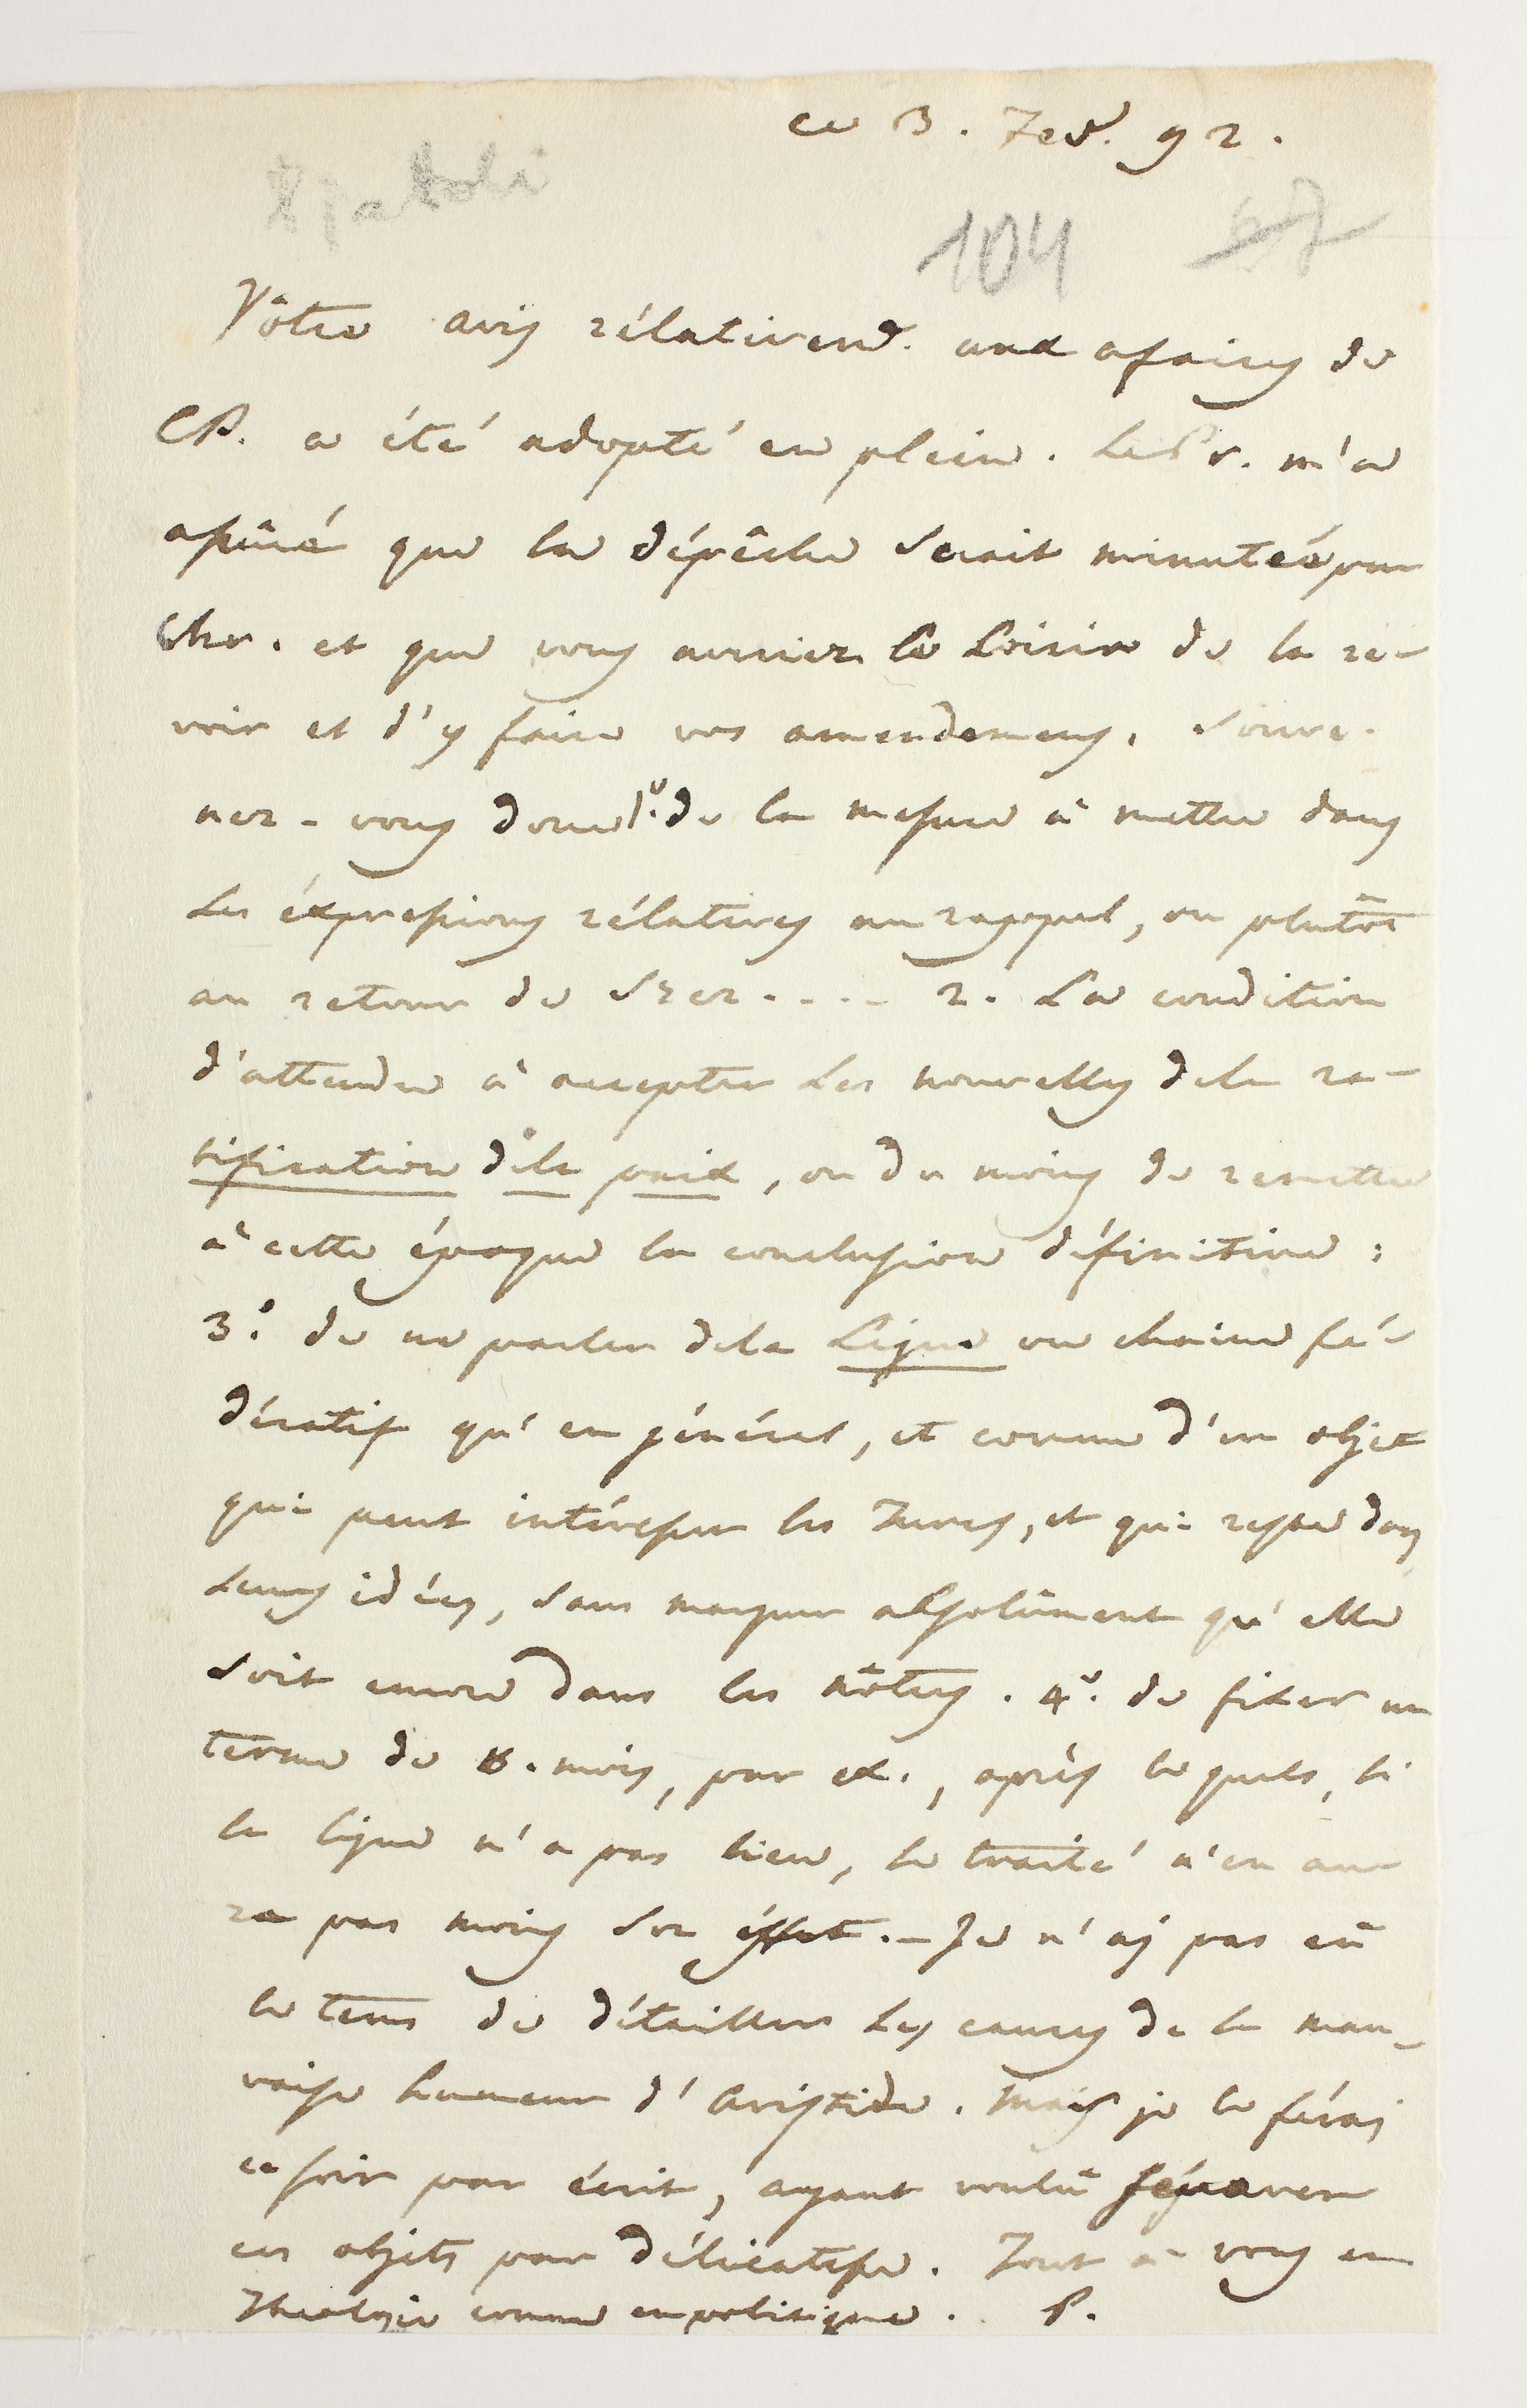 ce 3. Fev. 92.
104
Vôtre avis rélativemt. aux afaires de
CP. a été adopté en plein. Le Pr. m'a
assûré que la dépêche serait minutée par
Chr. et que vous auriez le loisir de la re-
voir et d'y faire vos amendemens. Souve-
nez-vous donc 1º. de la mesure à mettre dans
les éxpressions rélatives au rappel, ou plutôt
au retour de Srez.... 2. La condition
d'attendre à accepter les nouvelles dela ra-
tification dela paix, ou du moins de remettre
à cette époque la conclusion définitive:
3º. de ne parler dela Ligue ou chaine fé-
dératif qu'en général, et comme d'un objet
qui peut intéresser les Turcs, et qui reste dans
leurs idées, sans marquer absolûment qu'elle
soit encore dans les nôtres. 4º. de fixer un
terme de mois, par ex., après lequels, si
la ligue n'a pas lieu, le traité n'en au-
ra pas moins son éffet.- Je n'aj pas eû
le tems de détailler les causes de la mau-
vaise humeur d'Aristide. Mais je le férai
ce soir par écrit, ayant voulû séparer
ces objets par délicatesse. Tout à vous en
Theologie comme en politique. P.